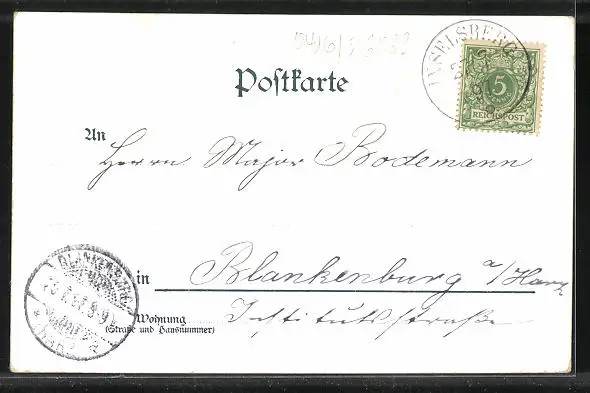 INSELSBERG
5
PFENNIG
REICHSPOST
Postkarte
An
Herrn Major Bodemann
in Blankenburg a/Harz
Wohnung Institutsstraße
(Straße und Hausnummer)
BLANKENBURG
(HARZ)